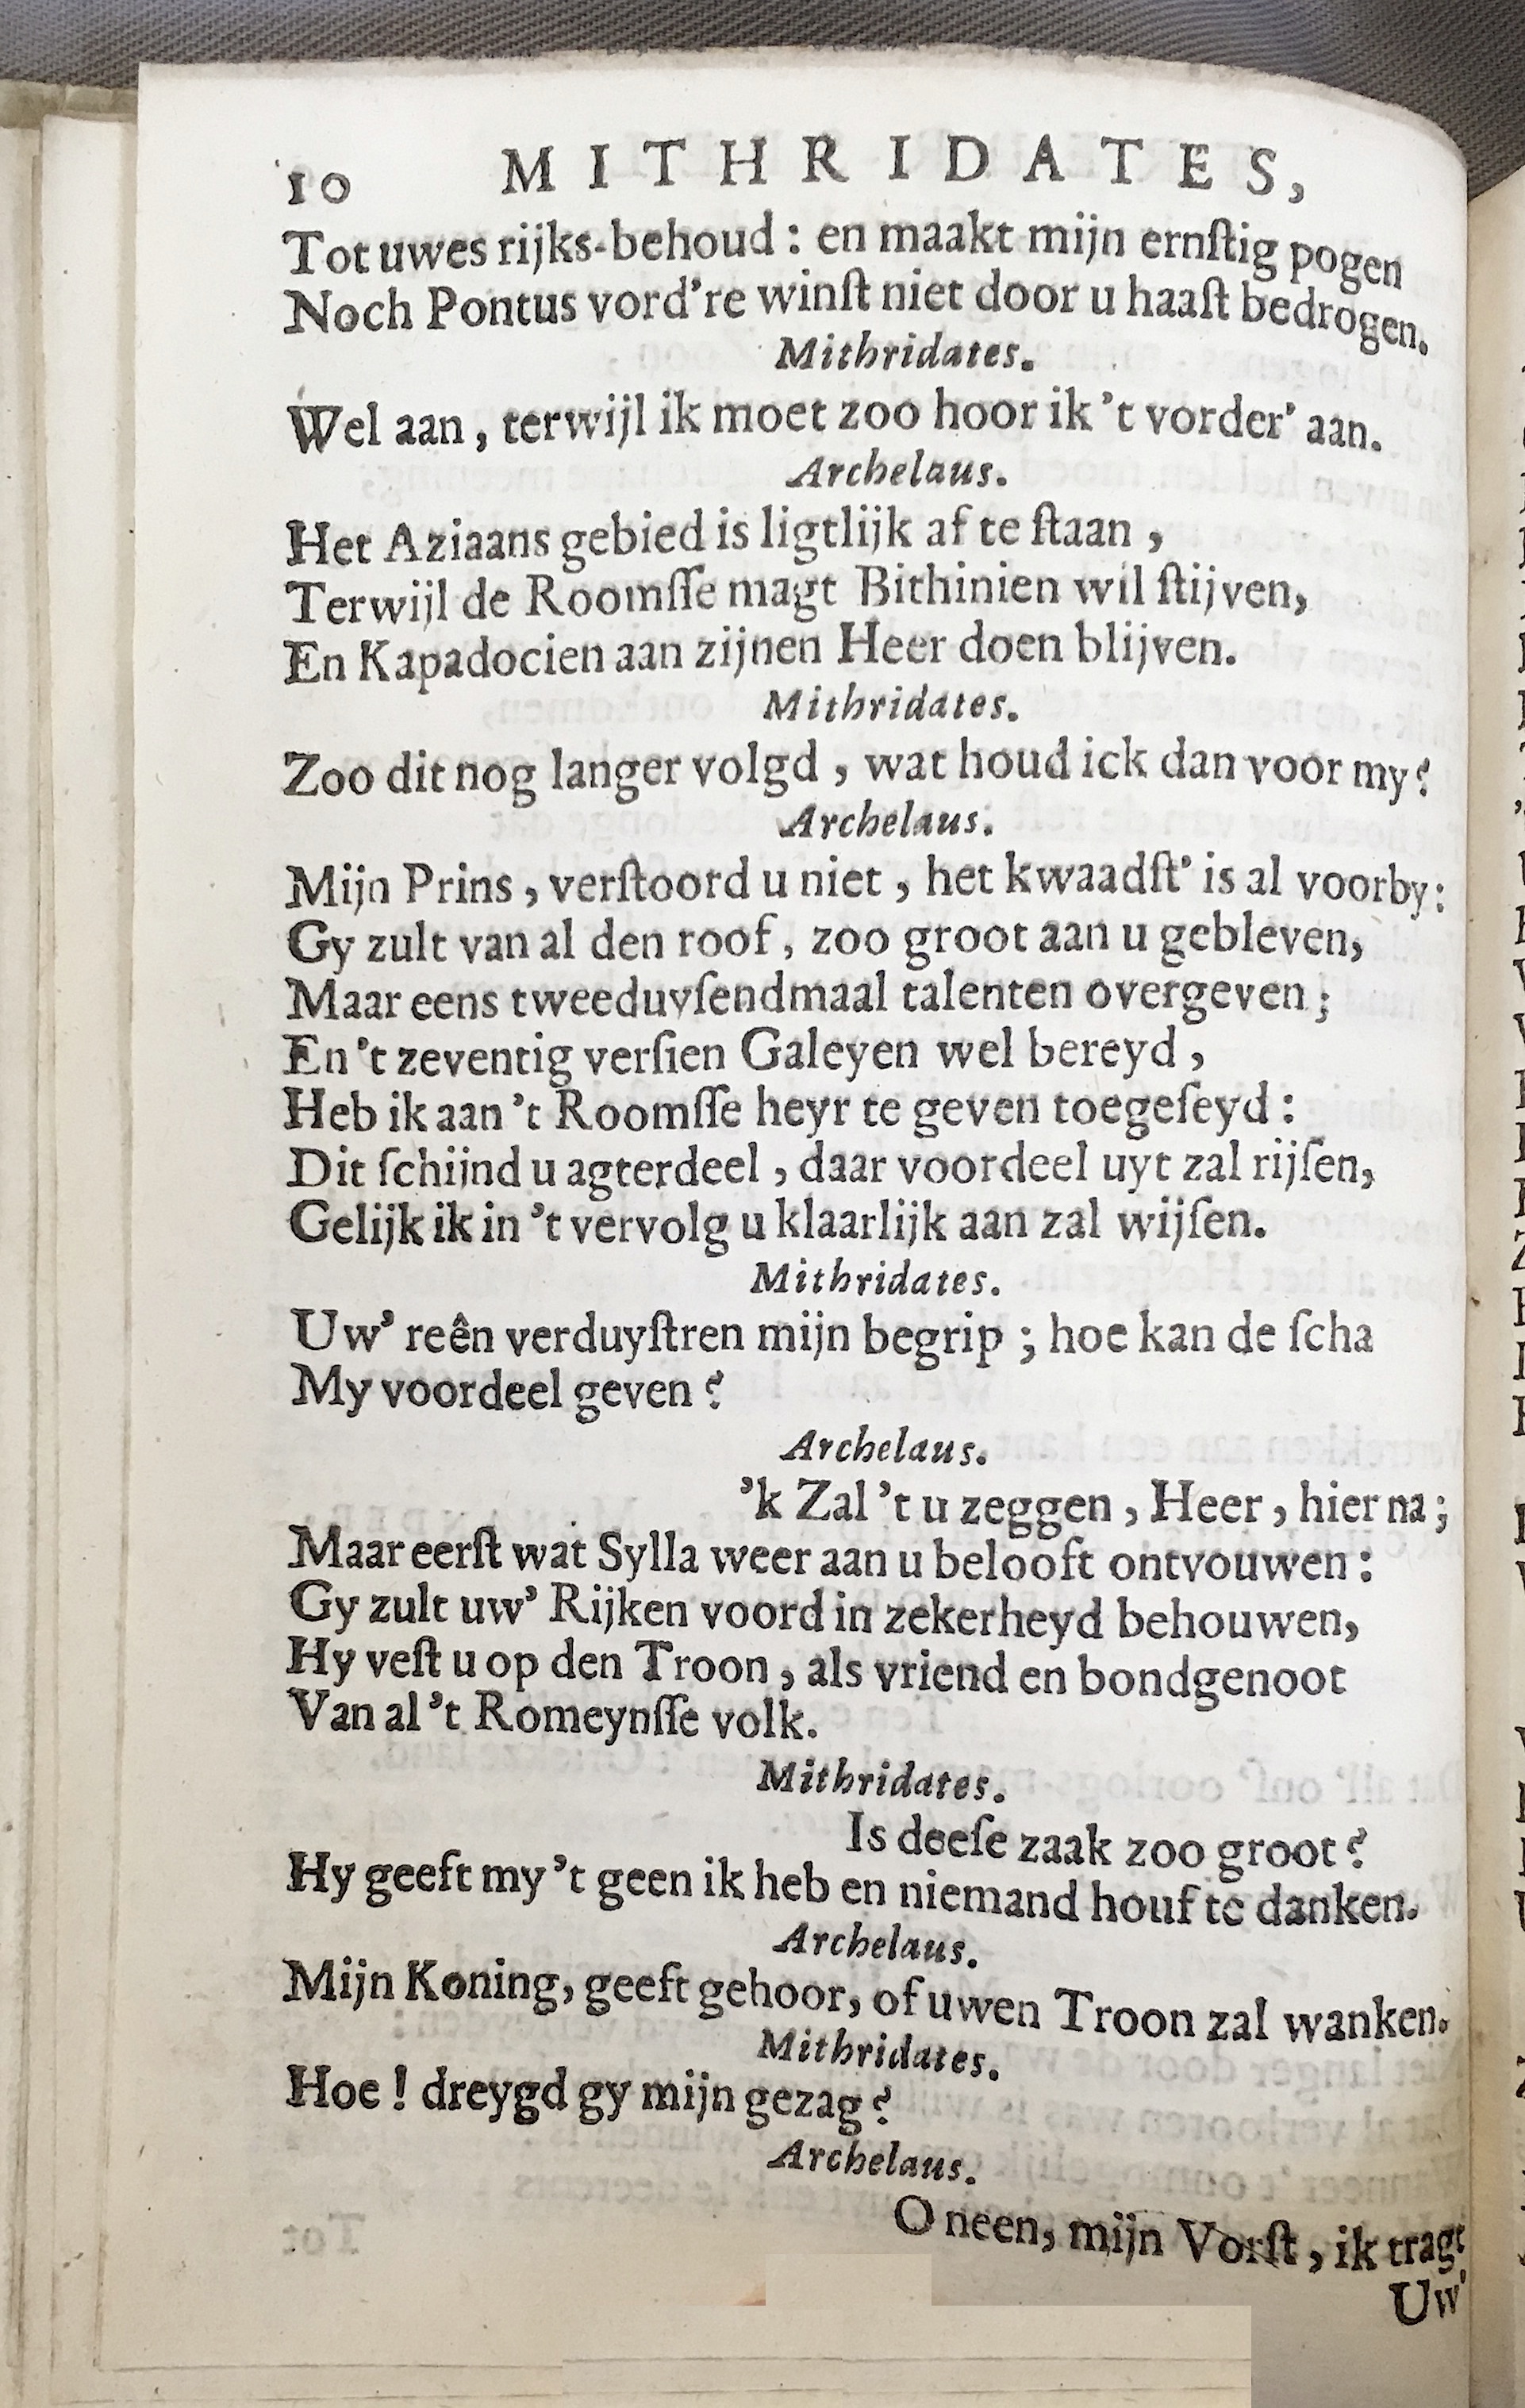 10 MITHRIDATES,
Tot uwes rijks-behoud : en maakt mijn ernſtig pogen
Noch Pontus vord’re winſt niet door u haaſt bedrogen.
Mithridates.
Wel aan, terwijl ik moet zoo hoor ik ’t vorder’ aan.
Archelaus.
Het Aziaans gebied is ligtlijk af te ſtaan,
Terwijl de Roomſſe magt Bithinien wil ſtijven,
En Kapadocien aan zijnen Heer doen blijven.
Mithridates.
Zoo dit nog langer volgd, wat houd ick dan voor my?
Archelaus.
Mijn Prins, verſtoord u niet, het kwaadſt’ is al voorby:
Gy zult van al den roof, zoo groot aan u gebleven,
Maar eens tweeduyſendmaal talenten overgeven;
En ’t zeventig verſien Galeyen wel bereyd,
Heb ik aan ’t Roomſſe heyr te geven toegeſeyd:
Dit ſchijnd u agterdeel, daar voordeel uyt zal rijſen,
Gelijk ik in ’t vervolg u klaarlijk aan zal wijſen.
Mithridates.
Uw’ reên verduyſtren mijn begrip; hoe kan de ſcha
My voordeel geven?
Archelaus.
’k Zal ’t u zeggen, Heer, hier na;
Maar eerſt wat Sylla weer aan u belooft ontvouwen:
Gy zult uw’ Rijken voord in zekerheyd behouwen,
Hy veſt u op den Troon, als vriend en bondgenoot
Van al ’t Romeynſſe volk.
Mithridates.
Is deeſe zaak zoo groot?
Hy geeft my ’t geen ik heb en niemand houf te danken.
Archelaus.
Mijn Koning, geeft gehoor, of uwen Troon zal wanken.
Mithridates.
Hoe! dreygd gy mijn gezag?
Archelaus.
O neen, mijn Vorſt, ik tragt
Uw’